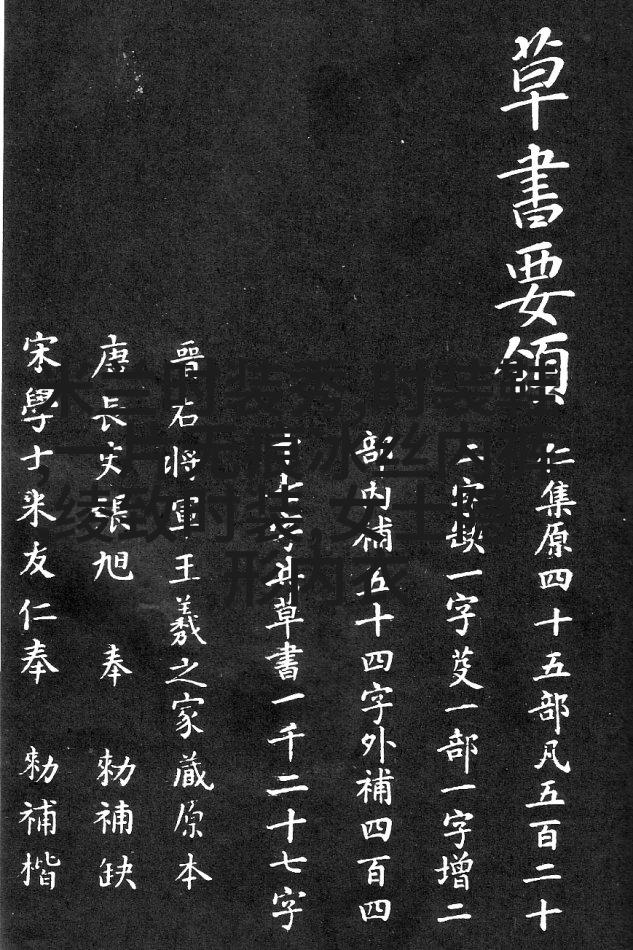 草書要領
仁集原四十五部凡五百二十
字缺一字芟一部一字增二
部内補五十四字外補四百四
七字共草書一千二十七字
晉右將軍王羲之家藏原本
唐長史張旭 奉 勑補缺
宋學士米友仁奉 勑補楷
木兰时装秀,时
,一片无痕冰丝内裤
,绫致时装,女士塑
形内衣